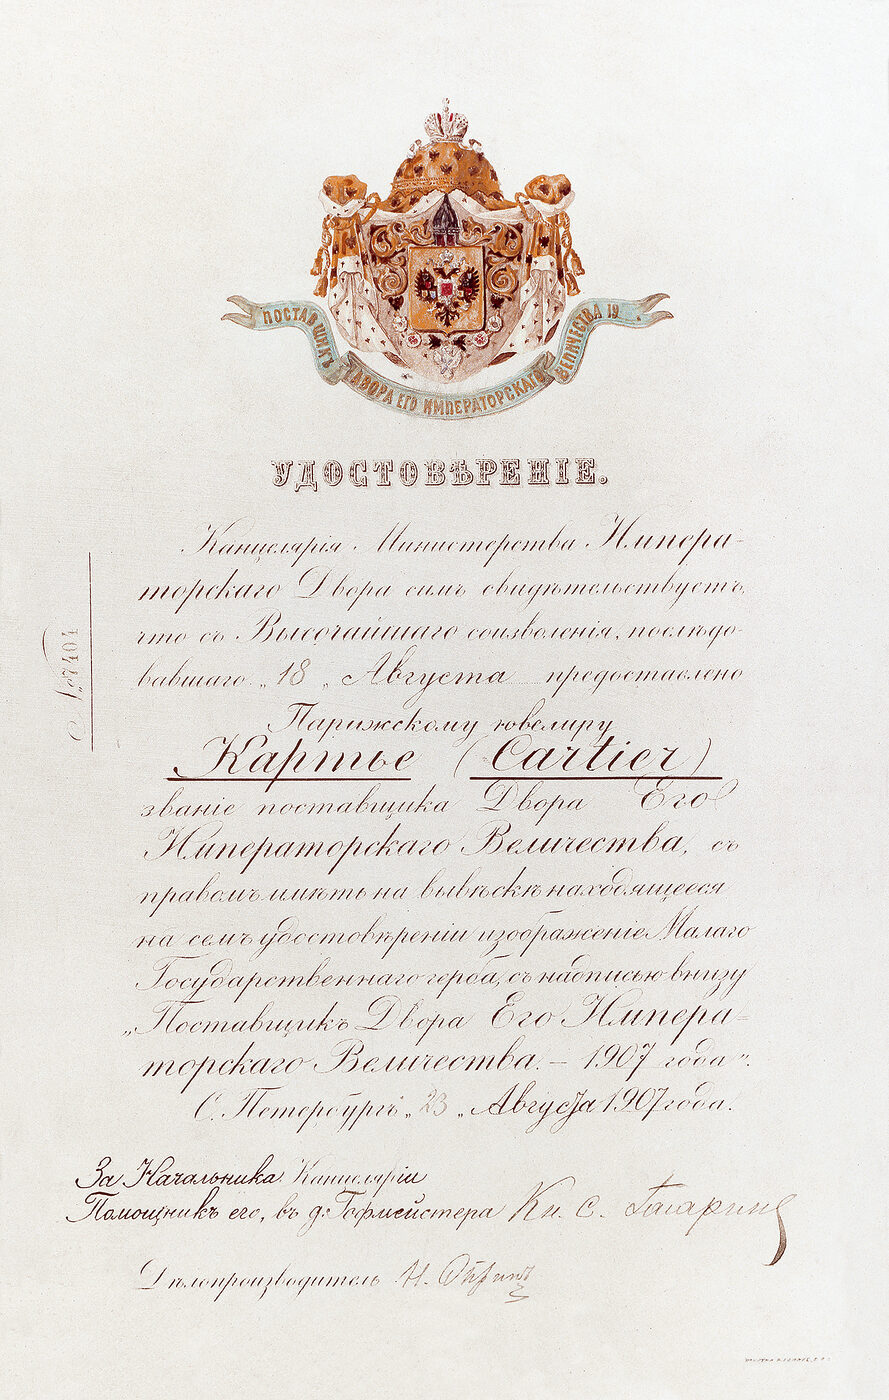 ПОСТАВЩИКЪ ДВОРА ЕГО ИМПЕРАТОРСКАГО ВЕЛИЧЕСТВА 19
УДОСТОВѢРЕНІЕ.
Канцелярія Министерства Импера-
торскаго Двора симъ свидѣтельствуетъ,
что съ Высочайшаго соизволенія, послѣдо-
вавшаго „18„ Августа предоставлено
Парижскому ювелиру
Картье (Cartier)
званіе поставщика Двора Его
Императорскаго Величества, съ
правомъ имѣть на вывѣскѣ находящееся
на семъ удостовѣреніи изображеніе Малаго
Государственнаго герба, съ надписью внизу
„Поставщикъ Двора Его Импера-
торскаго Величества. – 1907 года".
С. Петербургъ „23„ Августа 1907 года.
№ 7404
За Начальника Канцеляріи
Помощникъ его, въ д. Гофмейстера Кн. С. Гагаринъ
Дѣлопроизводитель Н.